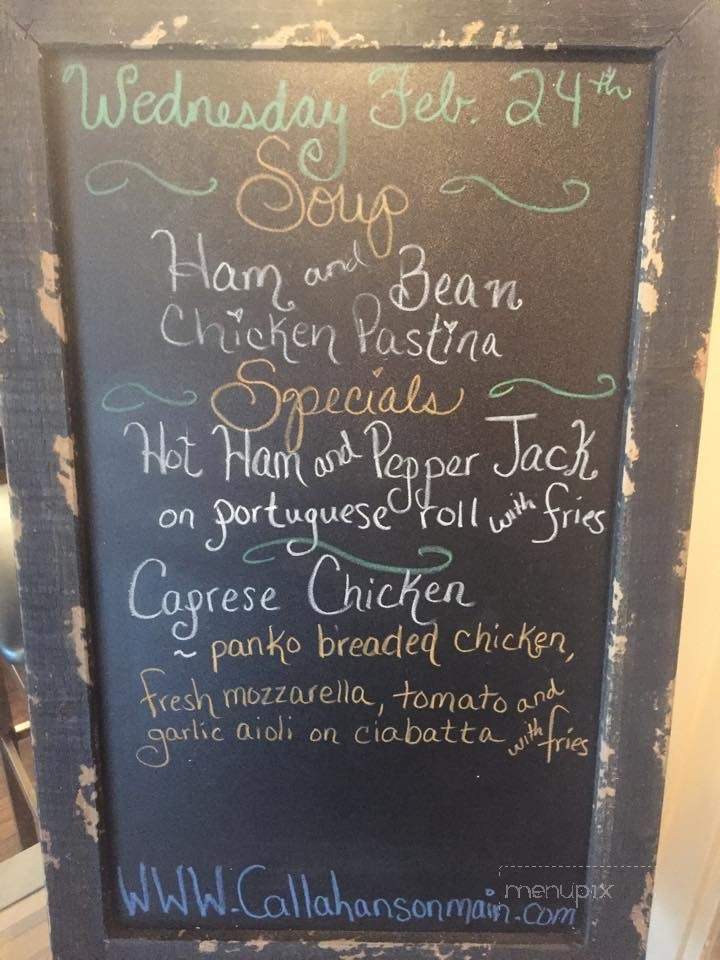 Wednesday Feb. 24th
Soup
Ham and Bean
Chicken Pastina
Specials
Hot Ham and Pepper Jack
on portuguese roll with fries
Caprese Chicken
~ panko breaded chicken,
fresh mozzarella, tomato and
garlic aioli on ciabatta with fries
menupix
WWW.Callahansonmain.com